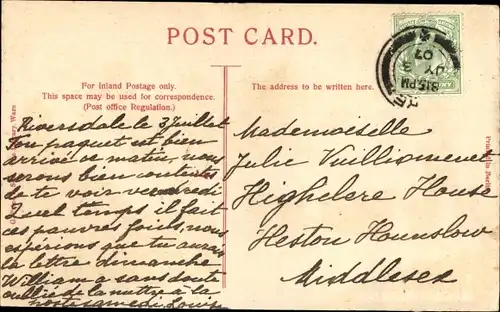 POST CARD.
For Inland Postage only.
This space may be used for correspondence.
(Post office Regulation.)
The address to be written here.
Riversdale le 3 Juillet
Ton paquet est bien
arrivé ce matin, nous
serons bien contentes
de te voir vendredi
Quel temps il fait
ces pauvres fouls, nous
espérions que tu aurais
la lettre dimanche
William a sans doute
oublié de la mettre à la
poste samedi. Louise
Mademoiselle
Julie Vuilliomenet
Highclere House
Heston Hounslow
Middlesex
8.15 PM
JY 3
07